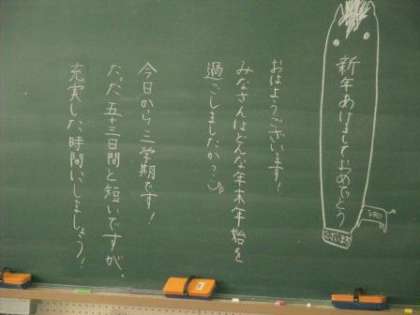 新年あけましておめでとう
ございます
おはようございます!
みなさんはどんな年末年始を
過ごしましたか?
今日から三学期です!
たった五十三日間と短いですが、
充実した時間にしましょう!